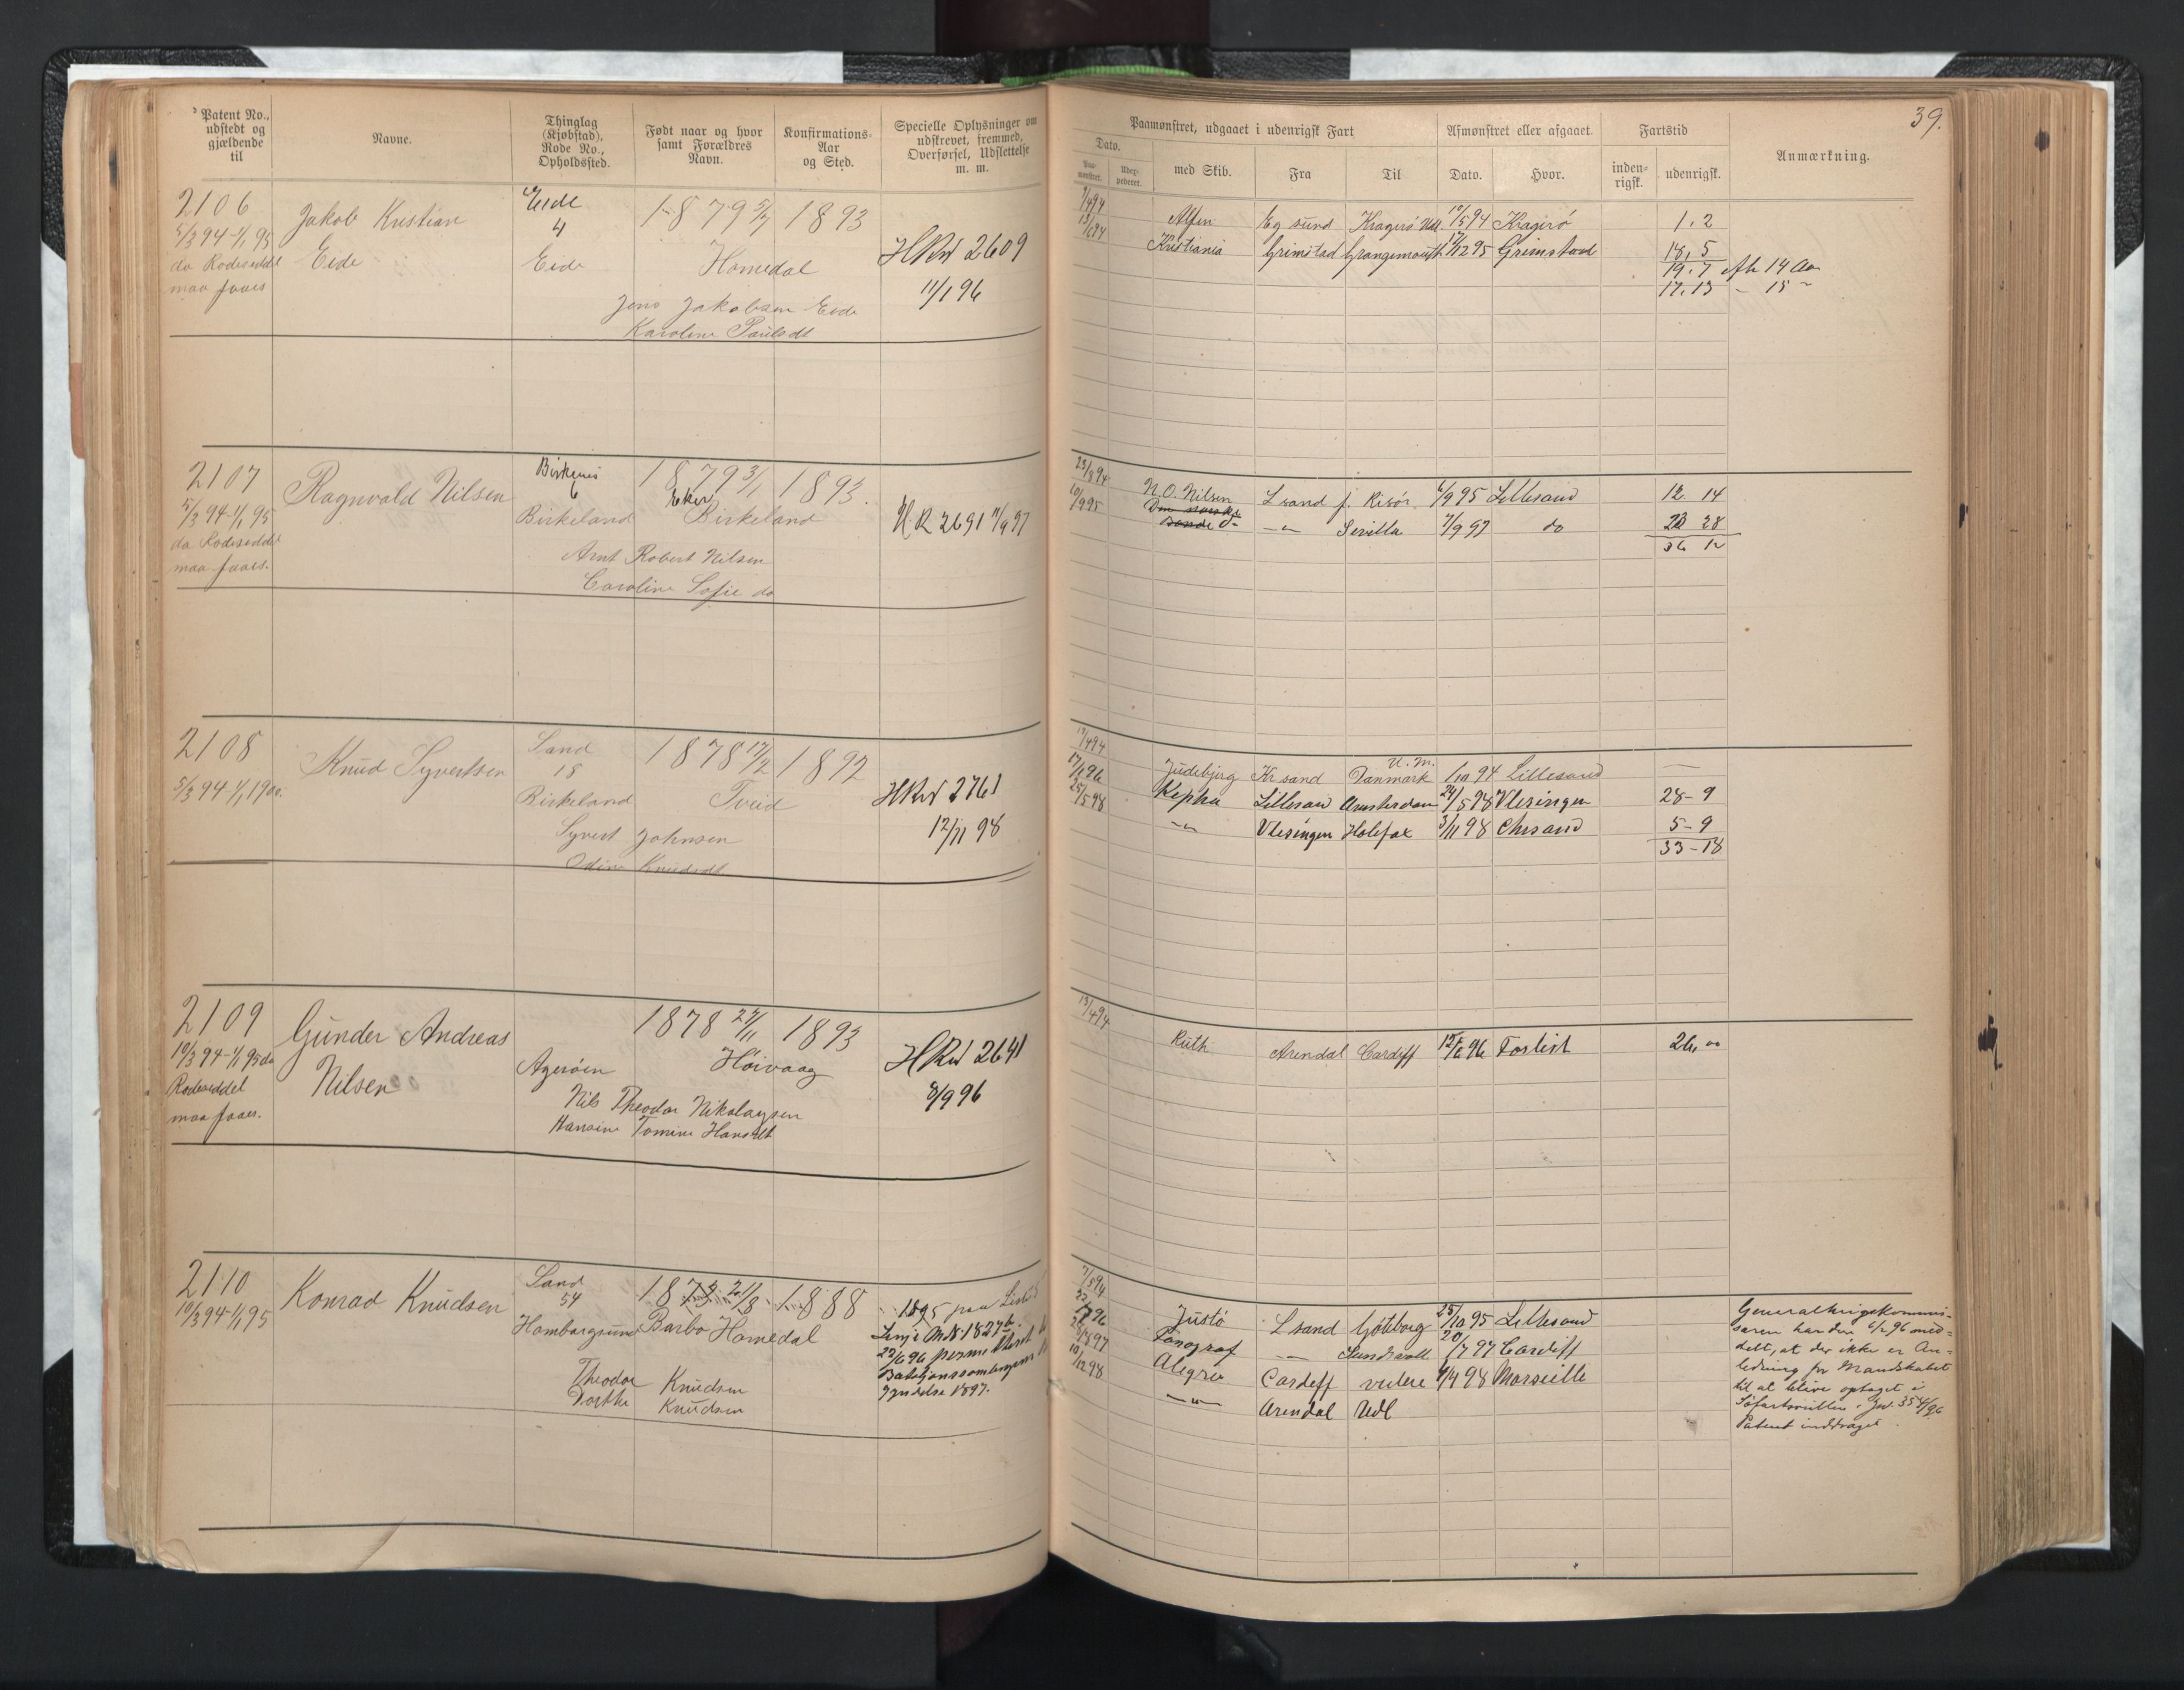 Patent No., udstedt og gjældende til
Navne.
Thinglag (Kjøbstad), Rode No., Opholdssted.
Født naar og hvor samt Forældres Navn.
Konfirmations-Aar og Sted.
Specielle Oplysninger om udskrevet, fremmed, Overførsel, Udslettelse m. m.
2106
5/3 94-1/1 95
da Rodeseddel
maa faaes
Jakob Kristian
Eide
Eide
4
Eide
1879 5/7 1893
Homedal
Jens Jakobsen Eide
Karoline Paulsdt
HRW 2609
11/1 96
2107
5/3 94-1/1 95
da Rodeseddel
maa faaes.
Ragnvald Nilsen
Birkenes
6
Birkeland
1879 3/1 1893.
Eker
Birkeland
Arnt Robert Nilsen
Caroline Sofie do
HR 2691 11/9 97
2108
5/3 94-1/1 1900.
Knud Syvertsen
Sand
18
Birkeland
1878 17/2 1892
Tveid
Syvert Johnsen
Odine Knudsdt
HRW 2761
12/11 98
2109
10/3 94-1/1 95 da
Rodeseddel
maa faaes.
Gunder Andreas
Nilsen
Agerøen
1878 27/11 1893
Høivaag
Nils Theodor Nikolaysen
Hansine Tomine Hansdt
HRW 2641
8/9 96
2110
10/3 94-1/1 95
Konrad Knudsen
Sand
54
Hombargsund
1873 21/8 1888
Barbo Homedal
Theodor Knudsen
Dorthe Knudsen
1895 paa
Linje M.N. 1827
22/6 96
1897.
39.
Paamønstret, udgaaet i udenrigsk Fart
Afmønstret eller afgaaet.
Fartstid
Anmærkning.
Dato.
Paa-mønstret.
Udex-pederet.
med Skib.
Fra
Til
Dato.
Hvor.
inden-rigsk.
udenrigsk.
7/4 94 Alfen Eg sund Kragerö Udl. 10/5 94 Kragerö 1.2
13/6 94 Kristiania Grimstad Grangemouth 17/12 95 Grimstad 18,5
19.7 Afh 14 Aar
17.13 - 15 "
23/8 94 N. O. Nilsen L sand f. Risör 6/9 95 Lillesand 12. 14
10/9 95 do -"- Sevilla 7/9 97 do 23 28
36 12
17/4 94 Judebjerg Kr sand Danmark 1/10 94 Lillesand —
17/1 96 Kepha Lillesand Amsterdam 24/5 98 Vlesingen 28-9
25/5 98 -"- Vlesingen Halifax 3/11 98 Chrsand 5-9
33-18
13/4 94 Ruth Arendal Cardiff 12/6 96 Forlist 26,00
7/5 94 Justö L sand Göteborg 25/10 95 Lillesand
Fonograf -"- Sundsvall 20/7 97 Cardiff
Alegro Cardeff videre 4/4 98 Marseille
10/12 98 -"- Arendal Udl
Generalkrigskommis-
særen har den 6/2 96 med-
delt, at der ikke er An-
ledning for Mandskabet
til at blive optaget i
Söfartsrullen. Jvd. 354/96
Patent inddraget.